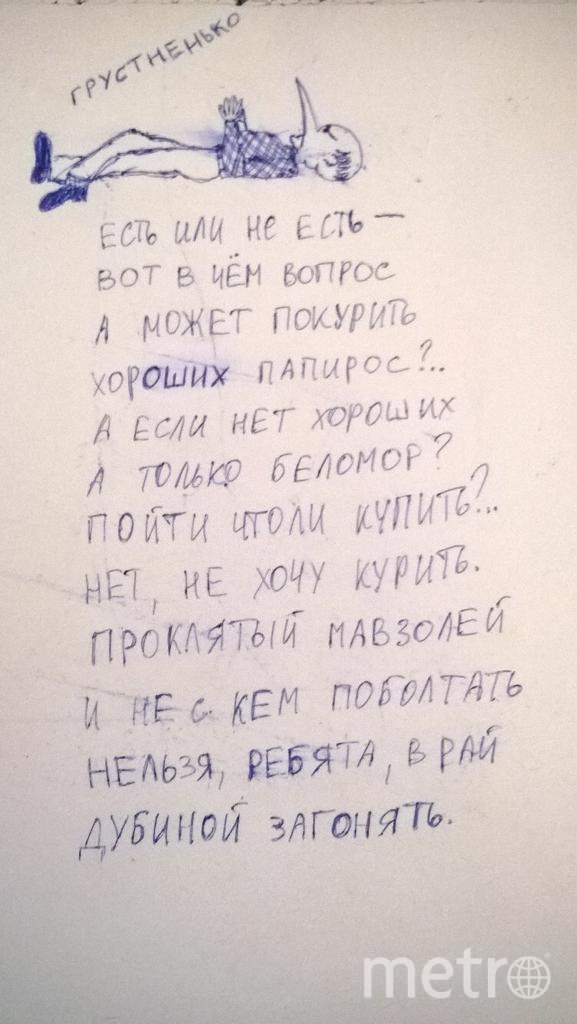 ГРУСТНЕНЬКО
ЕСТЬ ИЛИ НЕ ЕСТЬ —
ВОТ В ЧЁМ ВОПРОС
А МОЖЕТ ПОКУРИТЬ
ХОРОШИХ ПАПИРОС?..
А ЕСЛИ НЕТ ХОРОШИХ
А ТОЛЬКО БЕЛОМОР?
ПОЙТИ ЧТОЛИ КУПИТЬ?..
НЕТ, НЕ ХОЧУ КУРИТЬ.
ПРОКЛЯТЫЙ МАВЗОЛЕЙ
И НЕ С КЕМ ПОБОЛТАТЬ
НЕЛЬЗЯ, РЕБЯТА, В РАЙ
ДУБИНОЙ ЗАГОНЯТЬ.
metro